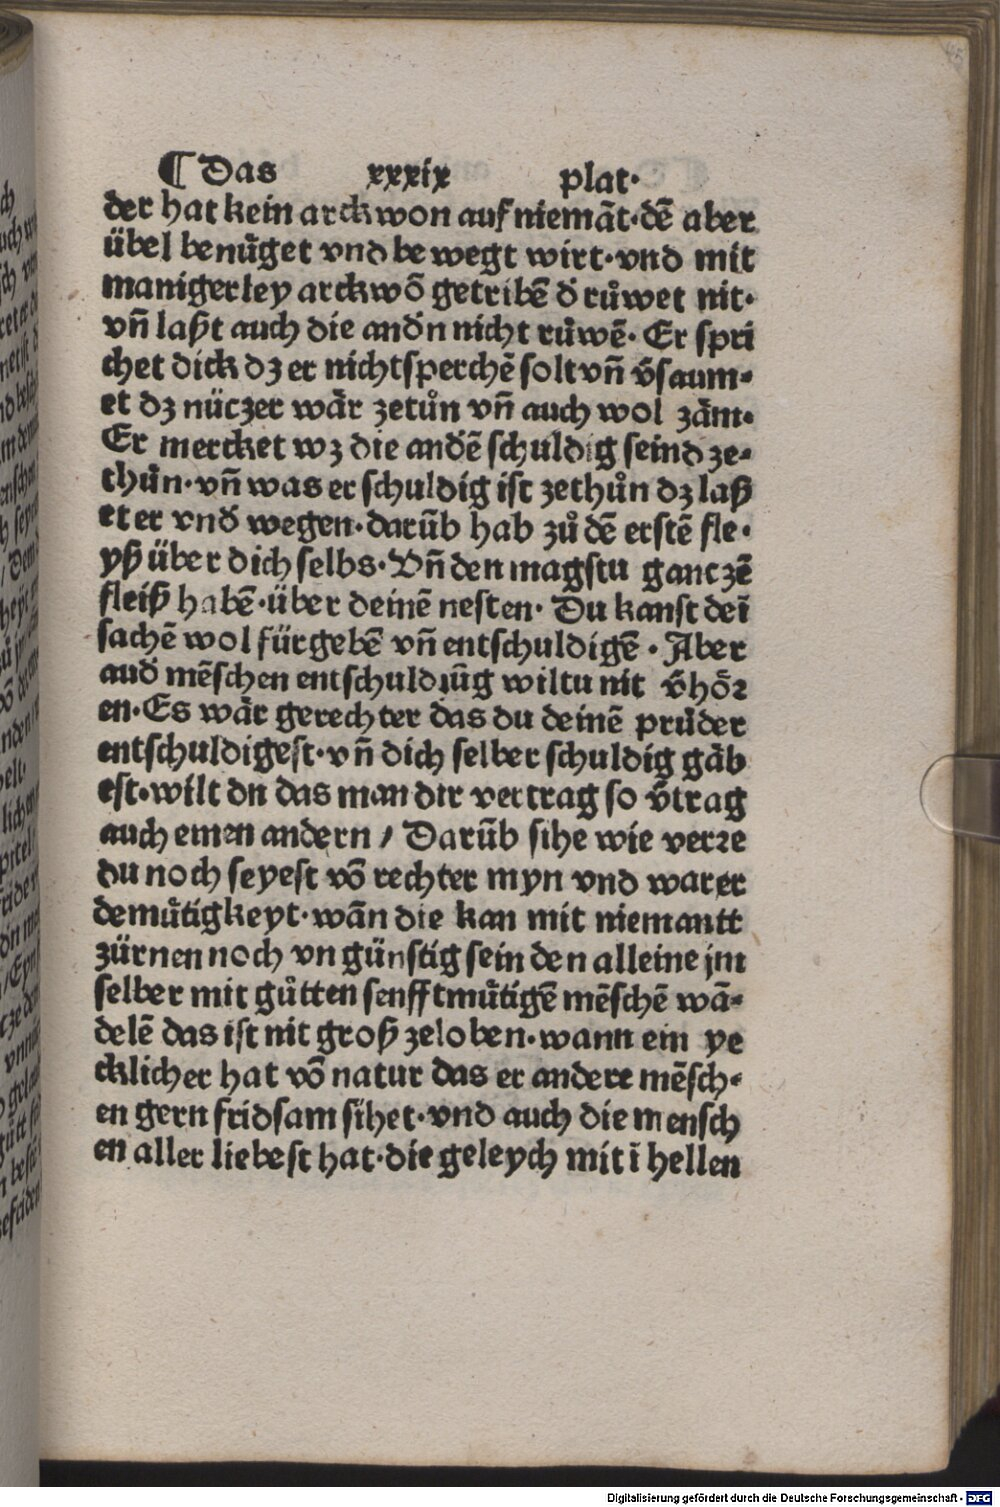 ¶ Das xxxix plat.
der hat kein arckwon auf niemãt·dẽ aber
übel benu̇get vnd bewegt wirt·vnd mit
manigerley arckwõ getribẽ d̓ růwet nit·
vñ laßt auch die and̓n nicht růwẽ· Er spri
chet dick dz er nicht sperchẽ solt vñ v̓saum-
et dz nüczer wår zetůn vñ auch wol zåm.
Er mercket wz die and̓ẽ schuldig seind ze-
thůn·vñ was er schuldig ist zethůn dz laß
et er vnd̓ wegen·darũb hab zů dẽ erstẽ fle-
yß über dich selbs·Vñ den magstu gantzẽ
fleiß habẽ·über deinẽ nesten· Du kanst deĩ
sachẽ wol fürgebẽ vñ entschuldigẽ · Aber
aud̓ mẽschen entschuldiũg wiltu nit v̓hôꝛ
en·Es wår gerechter das du deinẽ průder
entschuldigest·vñ dich selber schuldig gåb
est·wilt dn das man dir vertrag so v̓trag
auch einen andern / Darũb sihe wie verꝛe
du noch seyest võ rechter myn vnd warer
demůtigkeyt·wãn die kan mit niemantt
zürnen noch vngünstig sein den alleine jm
selber mit gůtten senfftmůtigẽ mẽschẽ wã-
delẽ das ist nit groß zeloben·wann ein ye
cklicher hat võ natur das er andere mẽsch-
en gern fridsam sihet·vnd auch die mensch
en aller liebest hat·die geleych mit ĩ hellen
Digitalisierung gefördert durch die Deutsche Forschungsgemeinschaft - DFG